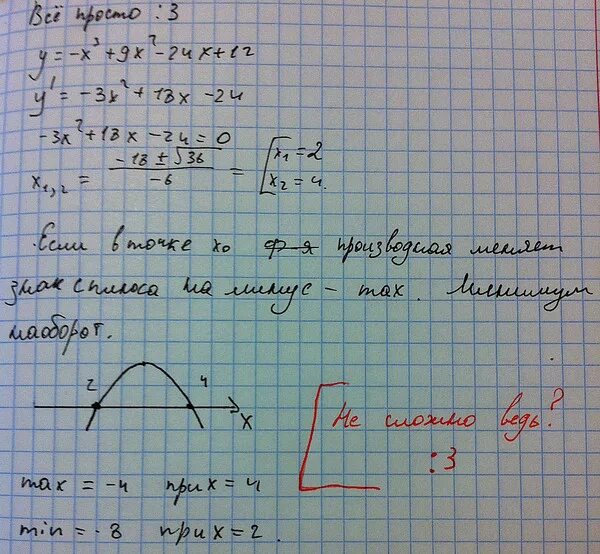 Всё просто :3
y = -x³ + 9x² - 24x + 12
y' = -3x² + 18x - 24
-3x² + 18x - 24 = 0
x₁,₂ = (-18 ± √36) / -6 = [x₁ = 2
x₂ = 4.
Если в точке x₀ ф-я производная меняет
знак с плюса на минус - max. Минимум
наоборот.
2 4 X
Не сложно ведь?
:3
max = -4 при x = 4
min = -8 при x = 2.